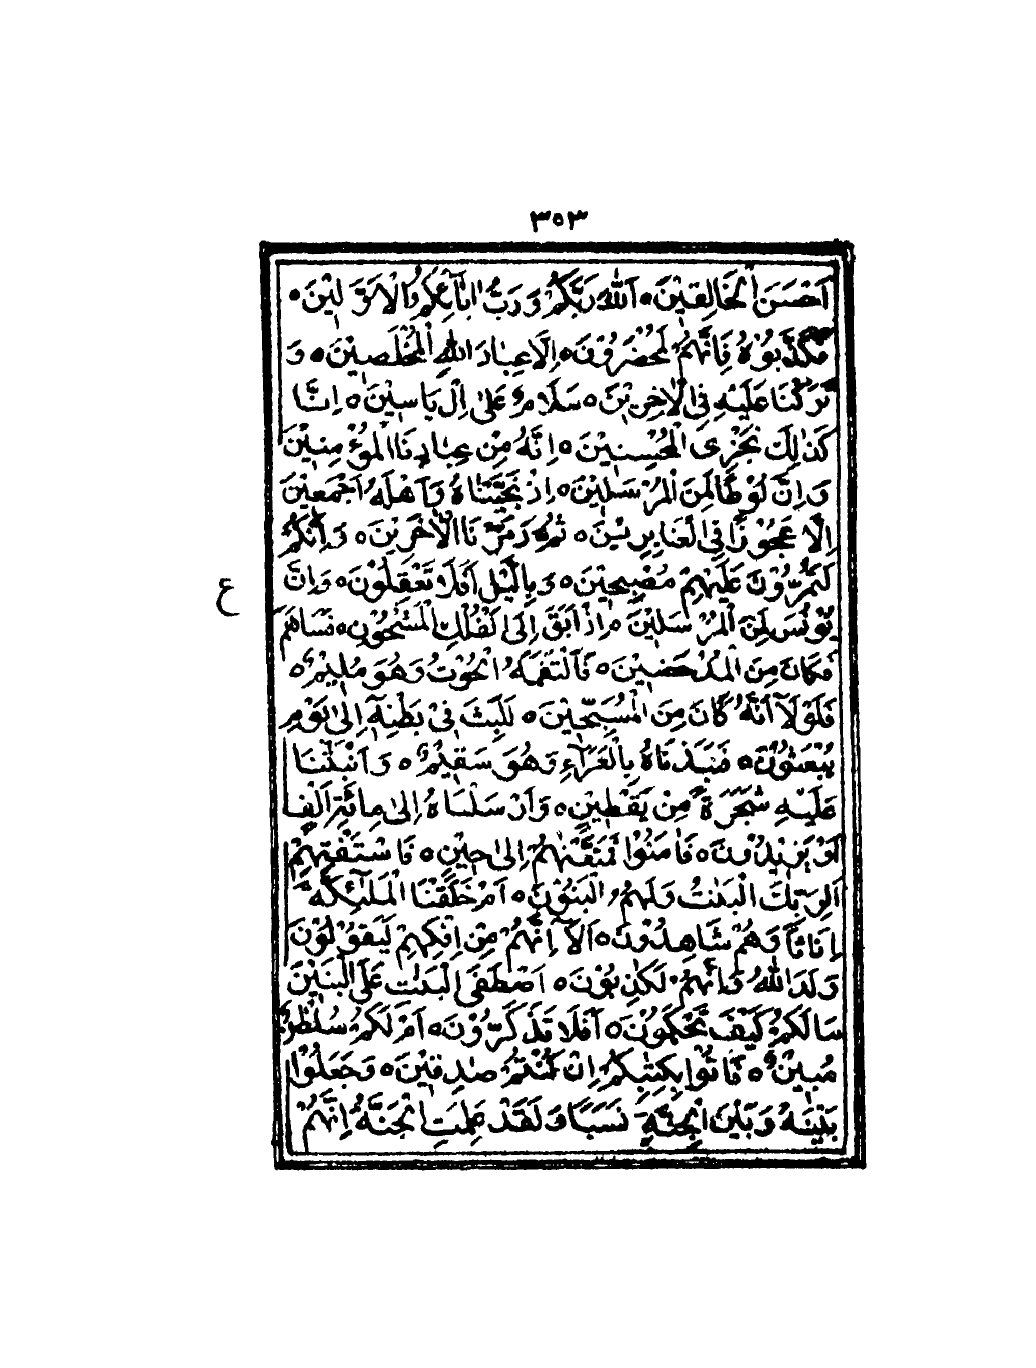 ٣٥٣
اَحْسَنَ الْخَالِقِيْنَ ه اَللّٰهَ رَبَّكُمْ وَ رَبَّ اٰبَآئِكُمُ الْاَوَّلِيْنَ ه
فَكَذَّبُوْهُ فَاِنَّهُمْ لَمُحْضَرُوْنَ ه اِلَّا عِبَادَ اللهِ الْمُخْلَصِيْنَ ه وَ
تَرَكْنَا عَلَيْهِ فِي الْاٰخِرِيْنَ ه سَلَامٌ عَلٰى اِلْ يَاسِيْنَ ه اِنَّا
كَذٰلِكَ نَجْزِى الْمُحْسِنِيْنَ ه اِنَّهُ مِنْ عِبَادِنَا الْمُؤْمِنِيْنَ
وَ اِنَّ لُوْطًا لَمِنَ الْمُرْسَلِيْنَ ه اِذْ نَجَّيْنَاهُ وَ اَهْلَهُ اَجْمَعِيْنَ
اِلَّا عَجُوْزًا فِي الْغَابِرِيْنَ ه ثُمَّ دَمَّرْنَا الْاٰخَرِيْنَ ه وَ اِنَّكُمْ
لَتَمُرُّوْنَ عَلَيْهِمْ مُصْبِحِيْنَ ه وَ بِالَّيْلِ اَفَلَا تَعْقِلُوْنَ ه وَ اِنَّ
ع
يُوْنُسَ لَمِنَ الْمُرْسَلِيْنَ ه اِذْ اَبَقَ اِلَى الْفُلْكِ الْمَشْحُوْنِ ه فَسَاهَمَ
فَكَانَ مِنَ الْمُدْحَضِيْنَ ه فَالْتَقَمَهُ الْحُوْتُ وَ هُوَ مُلِيْمٌ ه
فَلَوْ لَآ اَنَّهُ كَانَ مِنَ الْمُسَبِّحِيْنَ ه لَلَبِثَ فِيْ بَطْنِهٖٓ اِلٰى يَوْمِ
يُبْعَثُوْنَ ه فَنَبَذْنَاهُ بِالْعَرَآءِ وَ هُوَ سَقِيْمٌ ه وَ اَنْبَتْنَا
عَلَيْهِ شَجَرَةً مِنْ يَقْطِيْنٍ ه وَ اَرْسَلْنَاهُ اِلٰى مِائَةِ اَلْفٍ
اَوْ يَزِيْدُوْنَ ه فَاٰمَنُوْا فَمَتَّعْنٰهُمْ اِلٰى حِيْنٍ ه فَاسْتَفْتِهِمْ
اَلِرَبِّكَ الْبَنٰتُ وَ لَهُمُ الْبَنُوْنَ ه اَمْ خَلَقْنَا الْمَلٰٓئِكَةَ
اِنَاثًا وَ هُمْ شَاهِدُوْنَ ه اَلَآ اِنَّهُمْ مِنْ اِفْكِهِمْ لَيَقُوْلُوْنَ
وَلَدَ اللهُ وَ اِنَّهُمْ لَكٰذِبُوْنَ ه اَصْطَفَى الْبَنٰتِ عَلَى الْبَنِيْنَ
مَا لَكُمْ كَيْفَ تَحْكُمُوْنَ ه اَفَلَا تَذَكَّرُوْنَ ه اَمْ لَكُمْ سُلْطٰنٌ
مُبِيْنٌ ه فَاْتُوْا بِكِتٰبِكُمْ اِنْ كُنْتُمْ صٰدِقِيْنَ ه وَ جَعَلُوْا
بَيْنَهُ وَ بَيْنَ الْجِنَّةِ نَسَبًا وَ لَقَدْ عَلِمَتِ الْجِنَّةُ اِنَّهُمْ